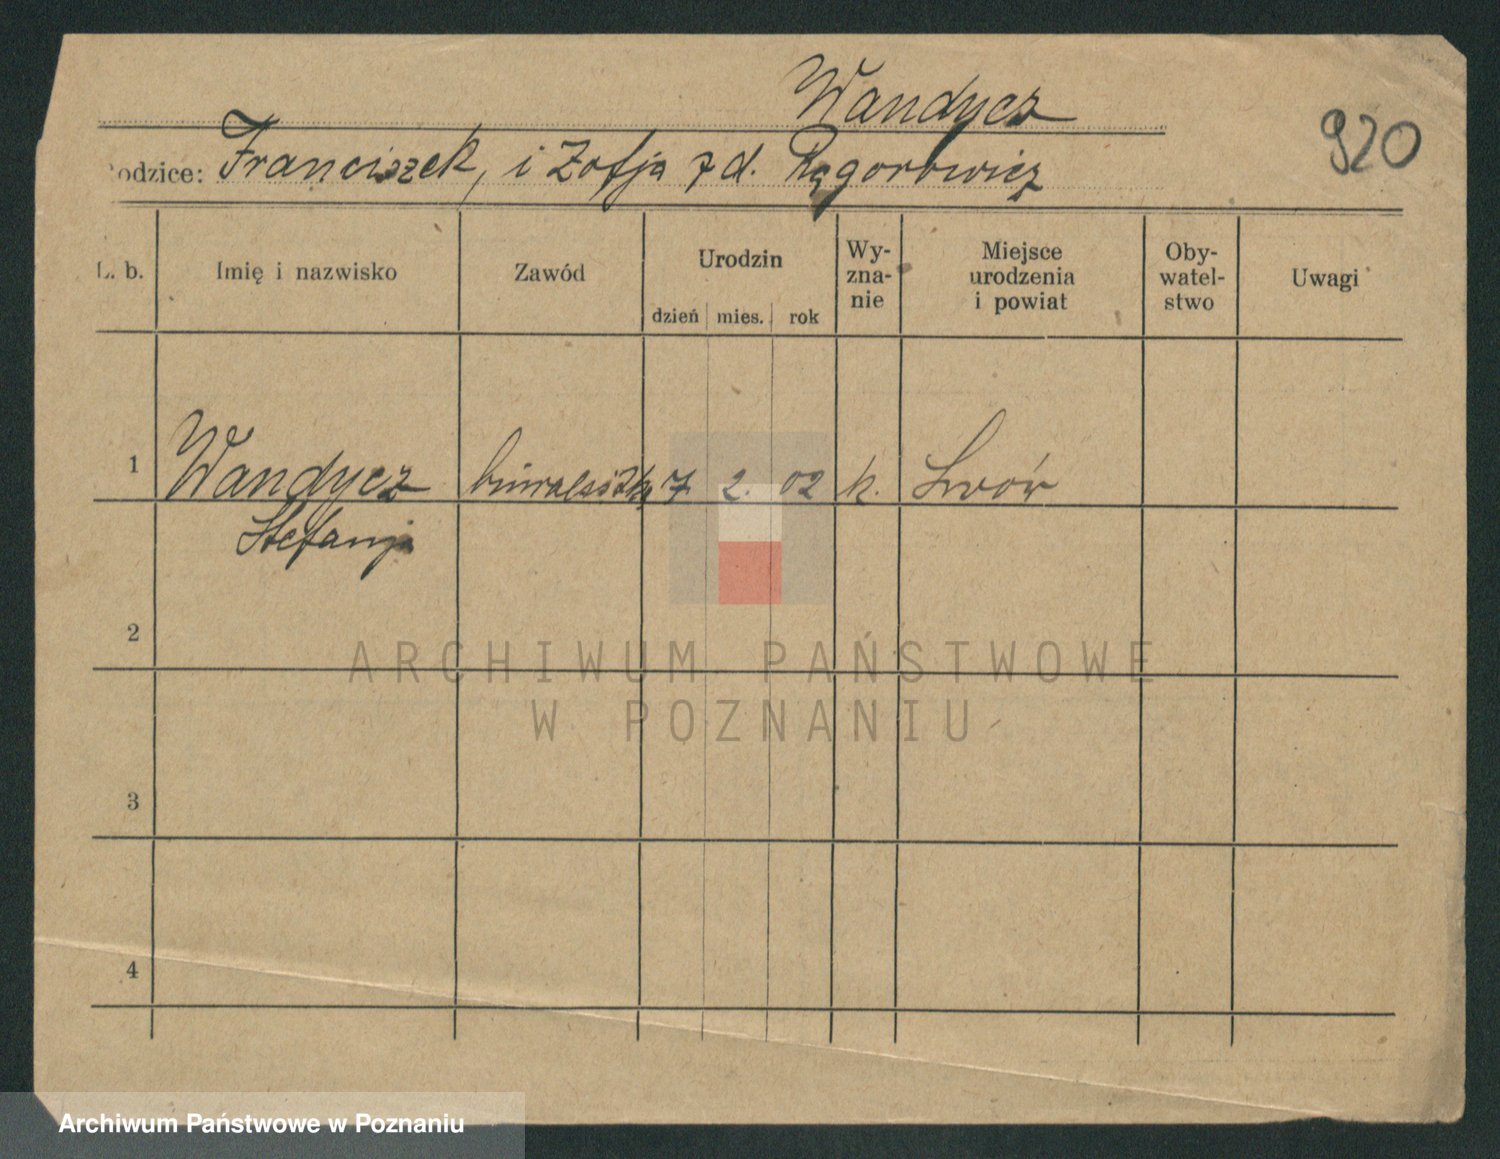 Wandycz
920
Rodzice: Franciszek, i Zofja z d.
L. b. Imię i nazwisko Zawód Urodzin dzień mies. rok Wyznanie Miejsce urodzenia i powiat Obywatelstwo Uwagi
1 Wandycz 7 2. 02 k. Lwów
Stefanja
2
ARCHIWUM PAŃSTWOWE
W POZNANIU
3
4
Archiwum Państwowe w Poznaniu